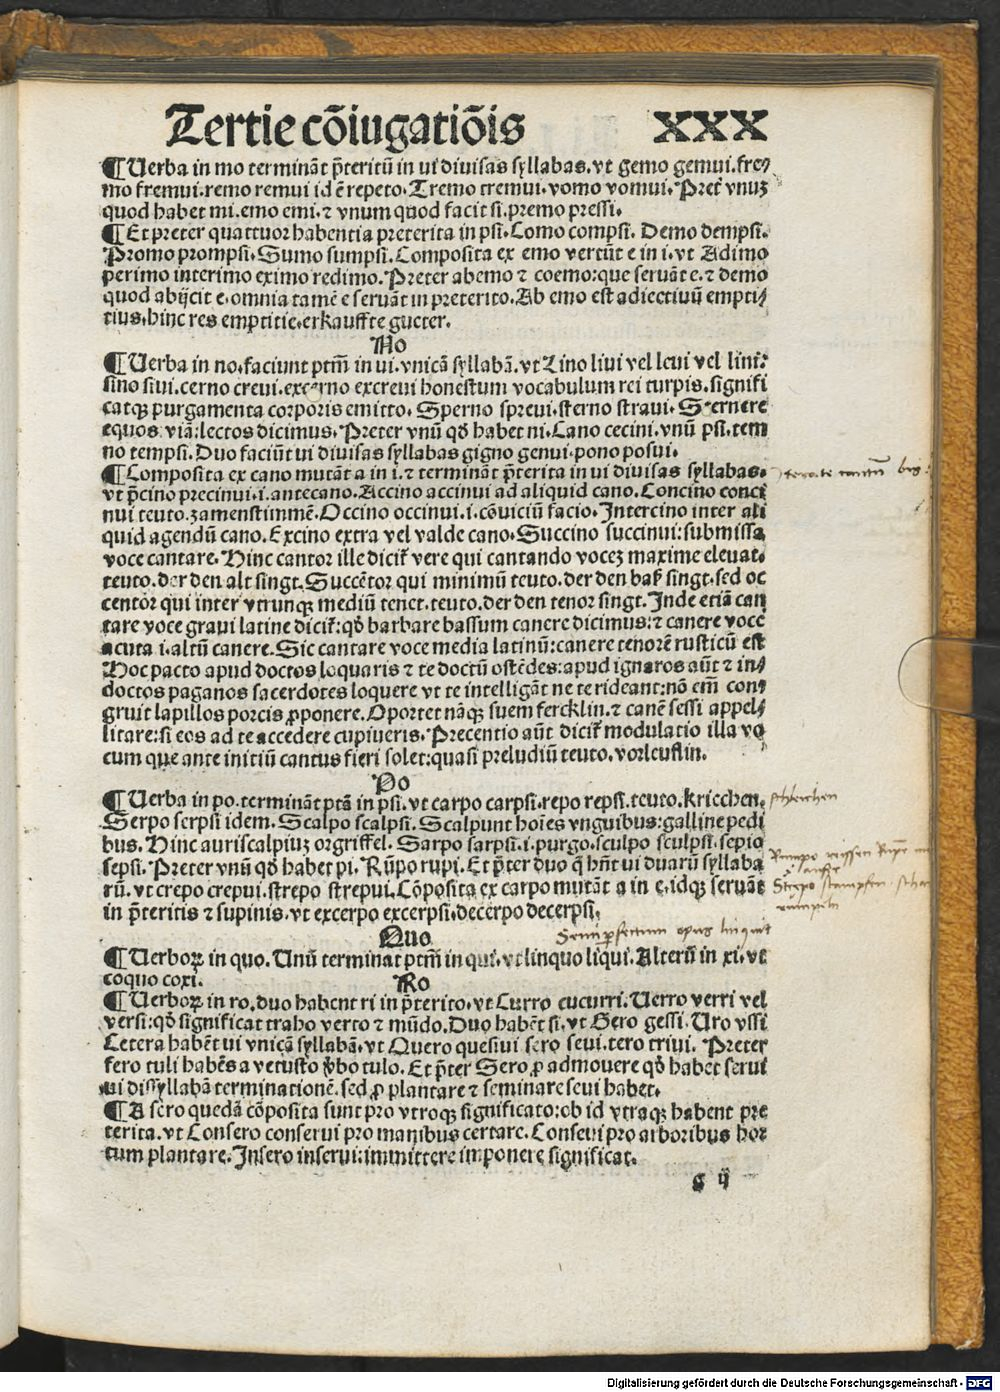 Tertie cōiugatiōis XXX
¶Uerba in mo terminãt p̃teritũ in ui diuisas syllabas. vt gemo gemui. fre⸗
mo fremui. remo remui id ẽ repeto. Tremo tremui. vomo vomui. Preť vnuꝫ
quod habet mi. emo emi. ⁊ vnum quod facit si. premo pressi.
¶Et preter quattuor habentia preterita in psi. Como compsi. Demo dempsi.
Promo prompsi. Sumo sumpsi. Composita ex emo vertũt e in i. vt Adimo
perimo interimo eximo redimo. Preter abemo ⁊ coemo: que seruãt e. ⁊ demo
quod abijcit e. omnia tamẽ e seruãt in preterito. Ab emo est adiectiuũ empti⸗
tius. hinc res emptitie. erkauffte gueter.
No
¶Uerba in no. faciunt ptm̃ in ui. vnicã syllabã. vt Lino liui vel leui vel lini:
sino siui. cerno creui. excerno excreui honestum vocabulum rei turpis. signifi
catqꝫ purgamenta corporis emitto. Sperno spreui. sterno straui. Sternere
equos viã: lectos dicimus. Preter vnũ qđ habet ni. Cano cecini. vnũ psi. tem
no tempsi. Duo faciũt ui diuisas syllabas gigno genui. pono posui.
¶Composita ex cano mutãt a in i. ⁊ terminãt p̃terita in ui diuisas syllabas.
vt p̃cino precinui. i. antecano. Accino accinui ad aliquid cano. Concino conci
nui teuto. zamenstimmẽ. Occino occinui. i. cõuiciũ facio. Intercino inter ali
quid agendũ cano. Excino extra vel valde cano. Succino succinui: submissa
voce cantare. Hinc cantor ille diciť vere qui cantando vocez maxime eleuat.
teuto. der den alt singt. Succẽtor qui minimũ teuto. der den baß singt. sed oc
centor qui inter vtrunqꝫ mediũ tenet. teuto. der den tenor singt. Inde etiã can
tare voce graui latine diciť: qđ barbare bassum canere dicimus: ⁊ canere voce
acuta i. altũ canere. Sic cantare voce media latinũ: canere tenorẽ rusticũ est
Hoc pacto apud doctos loquaris ⁊ te doctũ ostẽdes: apud ignaros aũt ⁊ in⸗
doctos paganos sacerdotes loquere vt te intelligãt ne te rideant: nõ em̃ con⸗
gruit lapillos porcis ꝓponere. Oportet nãqꝫ suem fercklin. ⁊ canẽ sessi appel⸗
litare: si eos ad te accedere cupiueris. Precentio aũt diciť modulatio illa vo
cum que ante initiũ cantus fieri solet: quasi preludiũ teuto. vorleuflin.
Po
¶Uerba in po. terminãt ptã in psi. vt carpo carpsi. repo repsi. teuto. kriechen.
schleichen
Serpo serpsi idem. Scalpo scalpsi. Scalpunt hoĩes vnguibus: galline pedi
bus. Hinc auriscalpiuꝫ orgriffel. Sarpo sarpsi. i. purgo. sculpo sculpsi. sepio
sepsi. Preter vnũ qđ habet pi. Rũpo rupi. Et p̃ter duo q̃ hñt ui duarũ syllaba
rũ. vt crepo crepui. strepo strepui. Cõposita ex carpo mutãt a in e, idqꝫ seruãt
in p̃teritis ⁊ supinis. vt excerpo excerpsi. decerpo decerpsi.
Quo
¶Uerboꝝ in quo. Unũ terminat ptm̃ in qui. vt linquo liqui. Alterũ in xi. vt
coquo coxi.
Ro
¶Uerboꝝ in ro. duo habent ri in p̃terito. vt Curro cucurri. Uerro verri vel
versi: qđ significat traho verto ⁊ mũdo. Duo habẽt si. vt Gero gessi. Uro vssi
Cetera habẽt ui vnicã syllabã. vt Quero quesiui sero seui. tero triui. Preter
fero tuli habẽs a vetusto ṽbo tulo. Et p̃ter Sero ꝓ admouere qđ habet serui
ui dissyllabã terminationẽ. sed ꝓ plantare ⁊ seminare seui habet.
¶A sero quedã cõposita sunt pro vtroqꝫ significato: ob id vtraqꝫ habent pre
terita. vt Consero conserui pro manibus certare. Conseui pro arboribus hor
tum plantare. Insero inserui: immittere imponere significat.
g ij
Digitalisierung gefördert durch die Deutsche Forschungsgemeinschaft - DFG